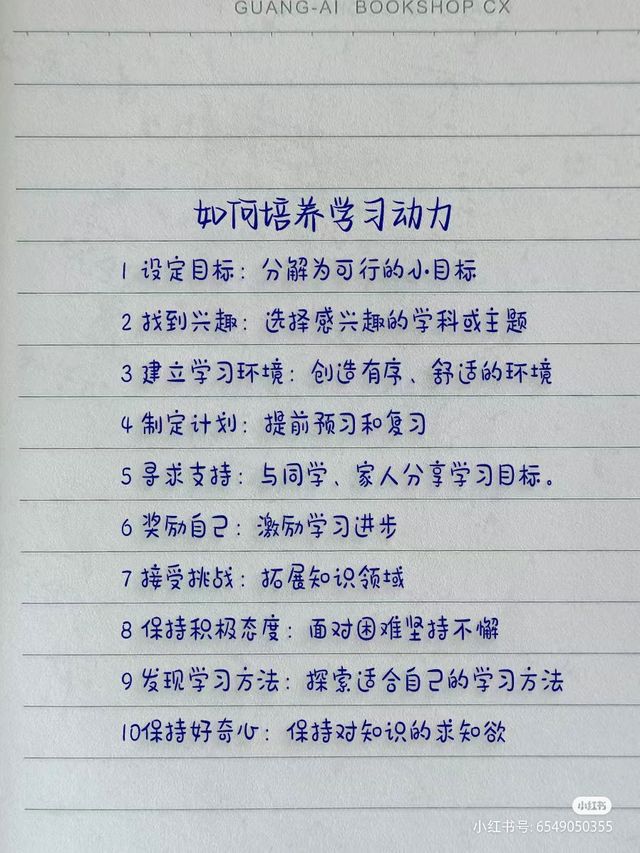 GUANG-AI BOOKSHOP CX
如何培养学习动力
1 设定目标：分解为可行的小目标
2 找到兴趣：选择感兴趣的学科或主题
3 建立学习环境：创造有序、舒适的环境
4 制定计划：提前预习和复习
5 寻求支持：与同学、家人分享学习目标。
6 奖励自己：激励学习进步
7 接受挑战：拓展知识领域
8 保持积极态度：面对困难坚持不懈
9 发现学习方法：探索适合自己的学习方法
10保持好奇心：保持对知识的求知欲
小红书
小红书号: 6549050355